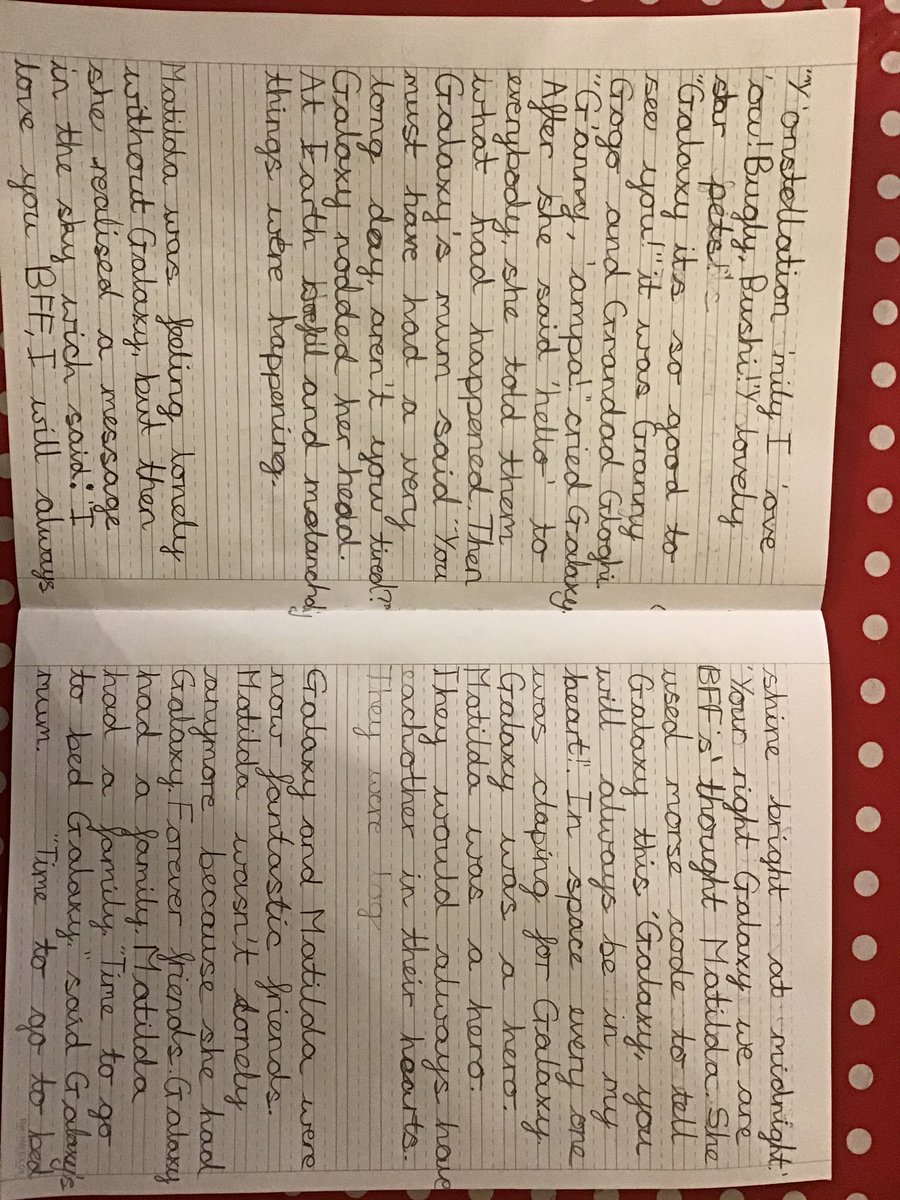 "'Y 'onstellation 'mily I 'ove
'ou! Bugly, Bushi!" 'Y lovely
star pets!"
"Galaxy its so good to
see you!" it was Granny
Gogo and Grandad Gloghi.
"G'anny, 'ampa!" cried Galaxy.
After she said 'hello' to
everybody, she told them
what had happened. Then
Galaxy's mum said "You
must have had a very
long day, aren't you tired?"
Galaxy nodded her head.
At Earth and melancholy
things were happening.
Matilda was feeling lonely
without Galaxy, but then
she realised a message
in the sky wich said: "I
love you BFF, I will always
shine bright at midnight.'
'Your right Galaxy we are
BFF's' thought Matilda. She
used morse code to tell
Galaxy this. "Galaxy, you
will always be in my
heart!". In space every one
was claping for Galaxy.
Galaxy was a hero.
Matilda was a hero.
They would always have
eachother in their hearts.
They were
Galaxy and Matilda were
now fantastic friends.
Matilda wasn't lonely
anymore because she had
Galaxy. Forever friends. Galaxy
had a family. Matilda
had a family. "Time to go
to bed Galaxy." said Galaxy's
mum. "Time to go to bed